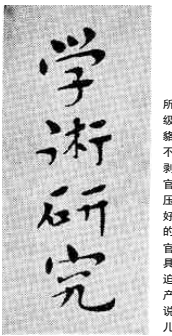 学術研究
所
级
不
剥
官
压
好
的
官
具
迫
产
说
儿